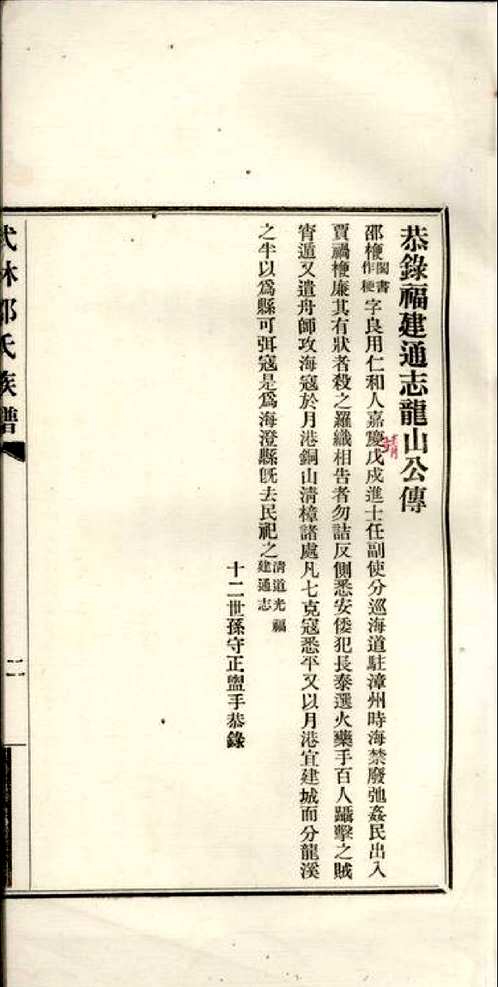 恭錄福建通志龍山公傳
邵楩閩書作梗字良用仁和人嘉慶戊戌進士任副使分巡海道駐漳州時海禁廢弛姦民出入
賈禍楩廉其有狀者殺之羅織相告者勿詰反側悉安倭犯長泰選火藥手百人躡擊之賊
宵遁又遣舟師攻海寇於月港銅山清樟諸處凡七克寇悉平又以月港宜建城而分龍溪
之半以爲縣可弭寇是爲海澄縣旣去民祀之清道光福建通志
十二世孫守正盥手恭錄
武林邵氏族譜